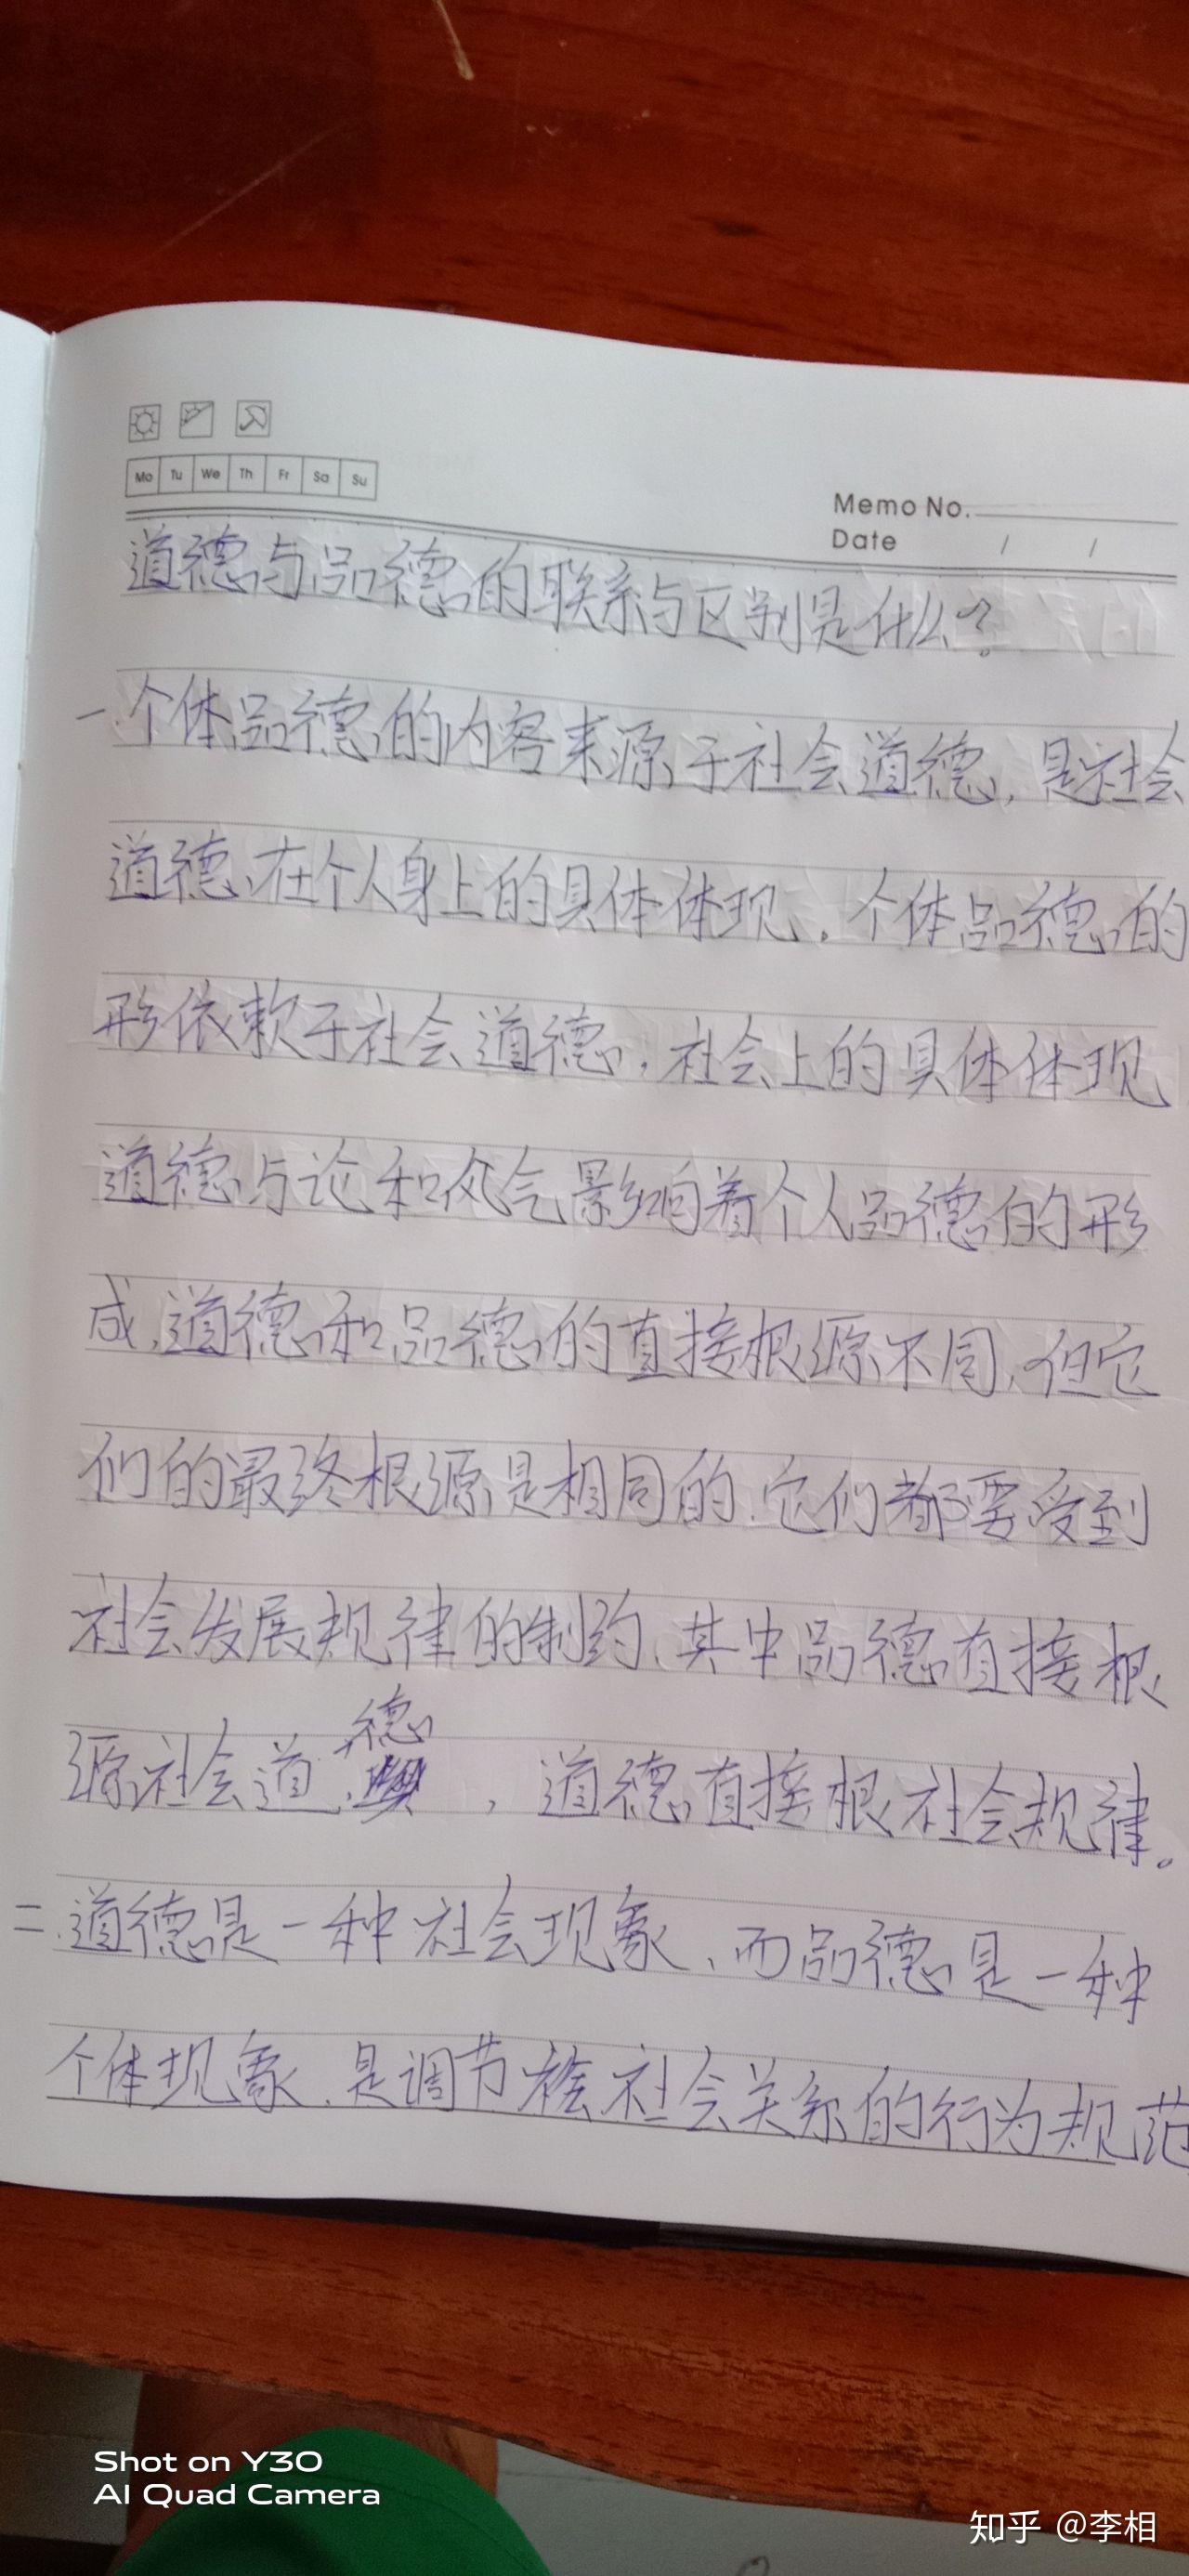 Mo Tu We Th Fr Sa Su
Memo No.
Date / /
道德与品德的联系与区别是什么?
一.个体品德的内容来源于社会道德,是社会
道德、在个人身上的具体体现。个体品德的
形依赖于社会道德,社会上的具体体现
道德与论和风气影响着个人品德的形
成,道德和品德的直接根源不同,但它
们的最终根源是相同的.它们都要受到
社会发展规律的制约、其中品德直接根
源社会道德,道德直接根社会规律。
二.道德是一种社会现象、而品德是一种
个体现象.是调节社会关系的行为规范
Shot on Y30
AI Quad Camera
知乎 @李相